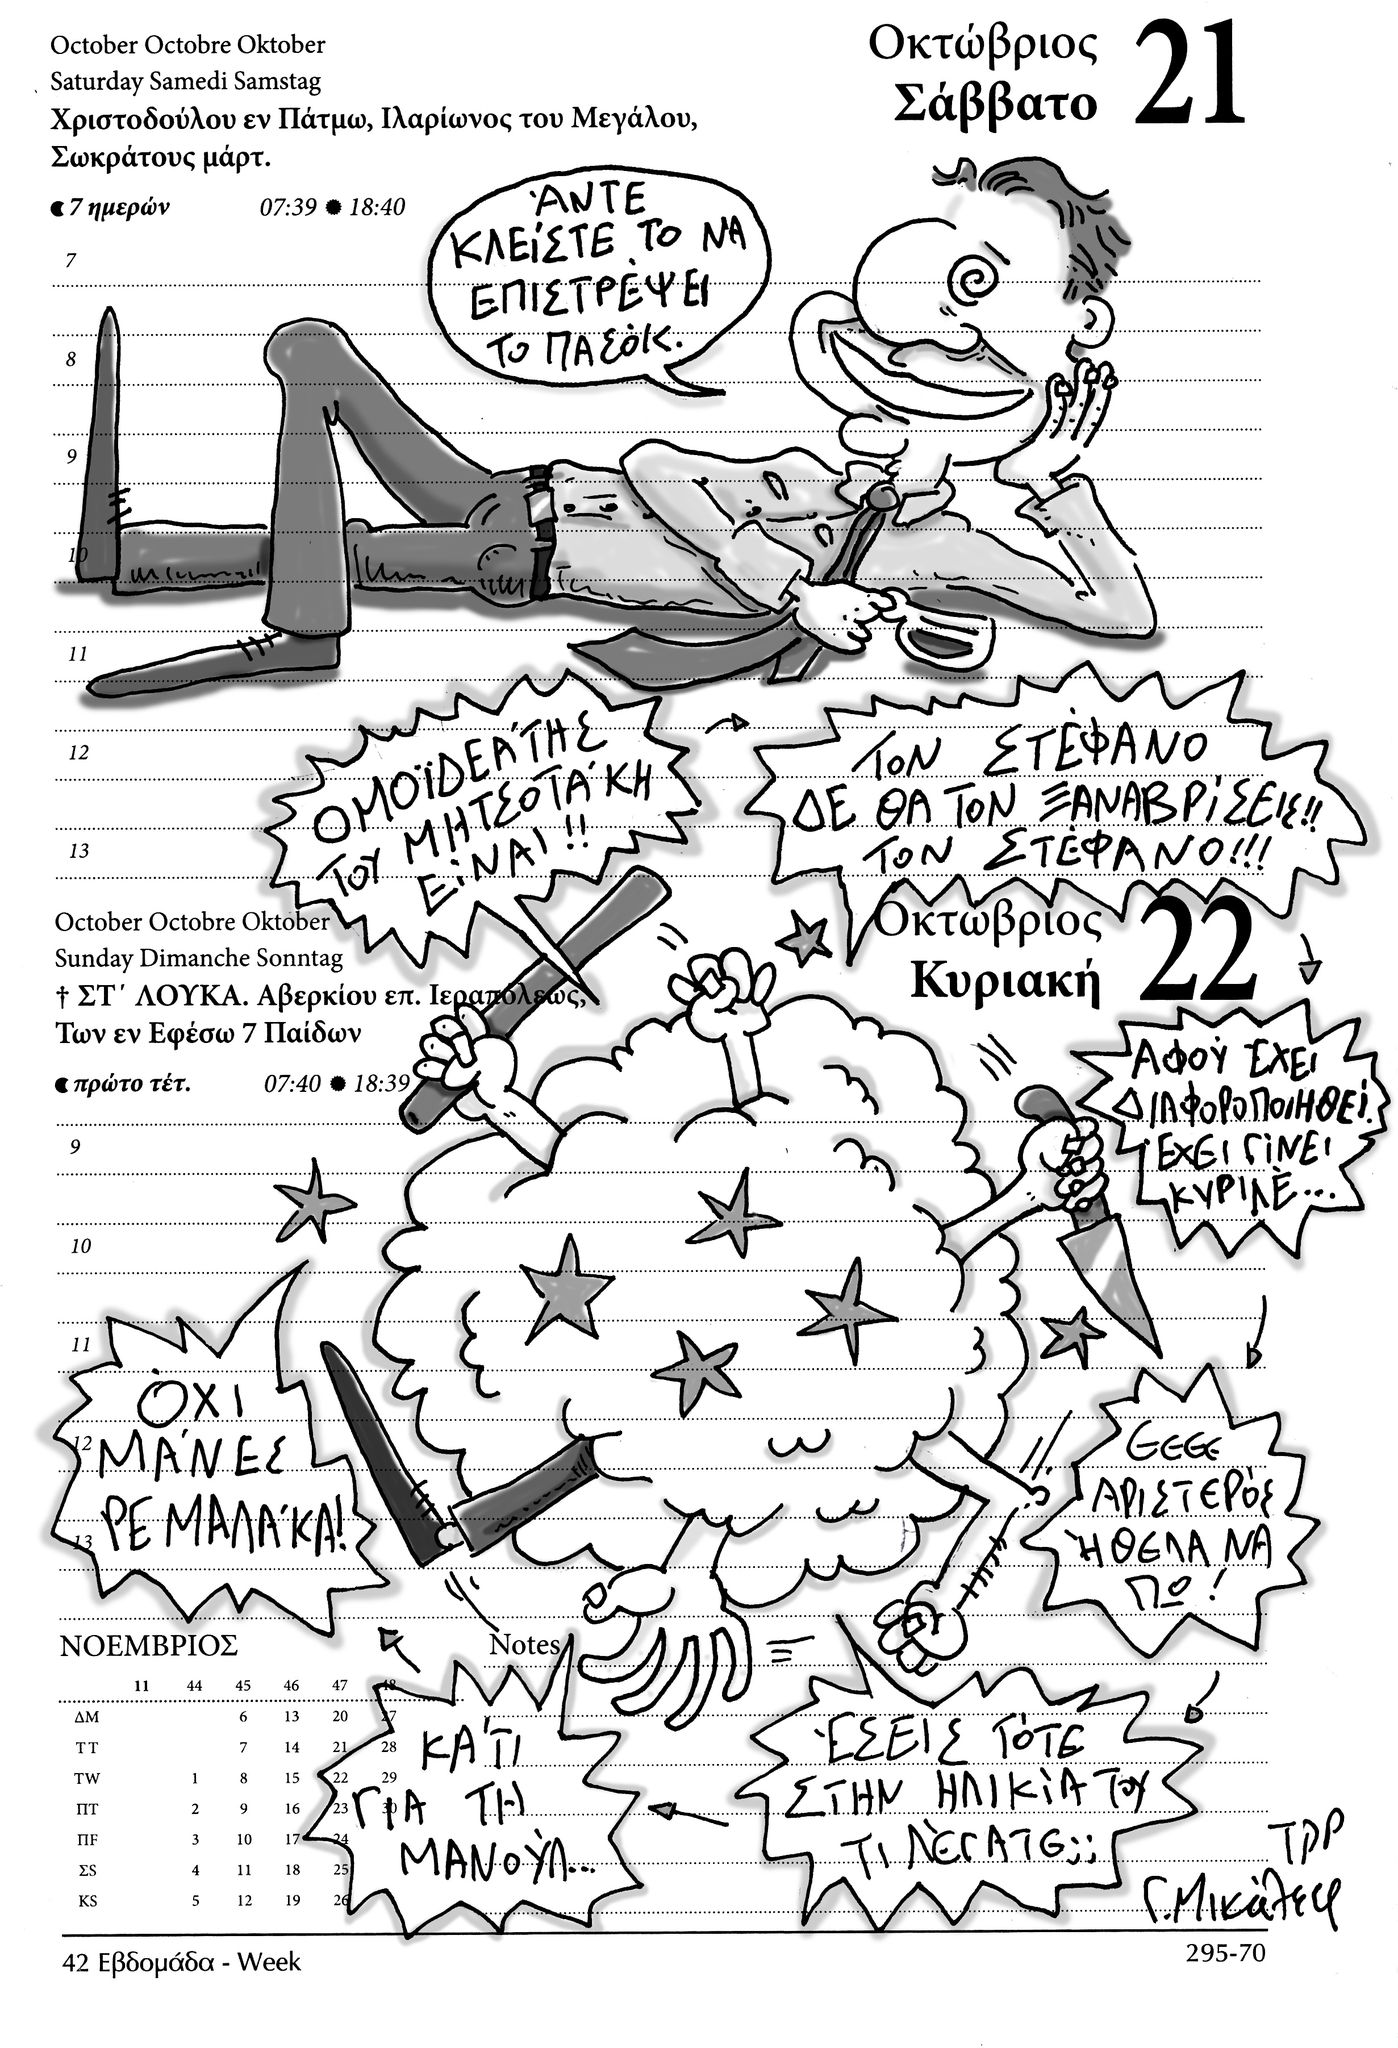 October Octobre Oktober
Saturday Samedi Samstag
Χριστοδούλου εν Πάτμω, Ιλαρίωνος του Μεγάλου,
Σωκράτους μάρτ.
7 ημερών 07:39 18:40
Οκτώβριος
Σάββατο
21
ΆΝΤΕ
ΚΛΕΊΣΤΕ ΤΟ ΝΑ
ΕΠΙΣΤΡΈΨΕΙ
ΤΟ ΠΑΣΌΚ.
7
8
9
10
11
12
13
ΟΜΟΪΔΕΆΤΗΣ
ΤΟΥ ΜΗΤΣΟΤΆΚΗ
ΕΊΝΑΙ!!
ΤΟΝ ΣΤΈΦΑΝΟ
ΔΕ ΘΑ ΤΟΝ ΞΑΝΑΒΡΊΣΕΙΣ!!
ΤΟΝ ΣΤΈΦΑΝΟ!!!
October Octobre Oktober
Sunday Dimanche Sonntag
† ΣΤ΄ ΛΟΥΚΑ. Αβερκίου επ. Ιεραπόλεως,
Των εν Εφέσω 7 Παίδων
πρώτο τέτ. 07:40 18:39
Οκτώβριος
Κυριακή
22
ΑΦΟΎ ΈΧΕΙ
ΔΙΑΦΟΡΟΠΟΙΗΘΕΊ.
ΈΧΕΙ ΓΊΝΕΙ
ΚΥΡΙΛΈ...
9
10
11
12
13
ΕΕΕΕ
ΑΡΙΣΤΕΡΌΣ
ΉΘΕΛΑ ΝΑ
ΠΩ!
ΕΣΕΙΣ ΤΌΤΕ
ΣΤΗΝ ΗΛΙΚΊΑ ΤΟΥ
ΤΙ ΛΈΓΑΤΕ;;
ΚΆΤΙ
ΓΙΑ ΤΗ
ΜΑΝΟΎΛ...
ΌΧΙ
ΜΆΝΕΣ
ΡΕ ΜΑΛΆΚΑ!
ΝΟΕΜΒΡΙΟΣ
Notes
11 44 45 46 47 48
ΔM 6 13 20 27
ΤT 7 14 21 28
ΤW 1 8 15 22 29
ΠT 2 9 16 23 30
ΠF 3 10 17 24
ΣS 4 11 18 25
ΚS 5 12 19 26
ΤΡΡ
Γ. Μικάλεφ
42 Εβδομάδα - Week
295-70